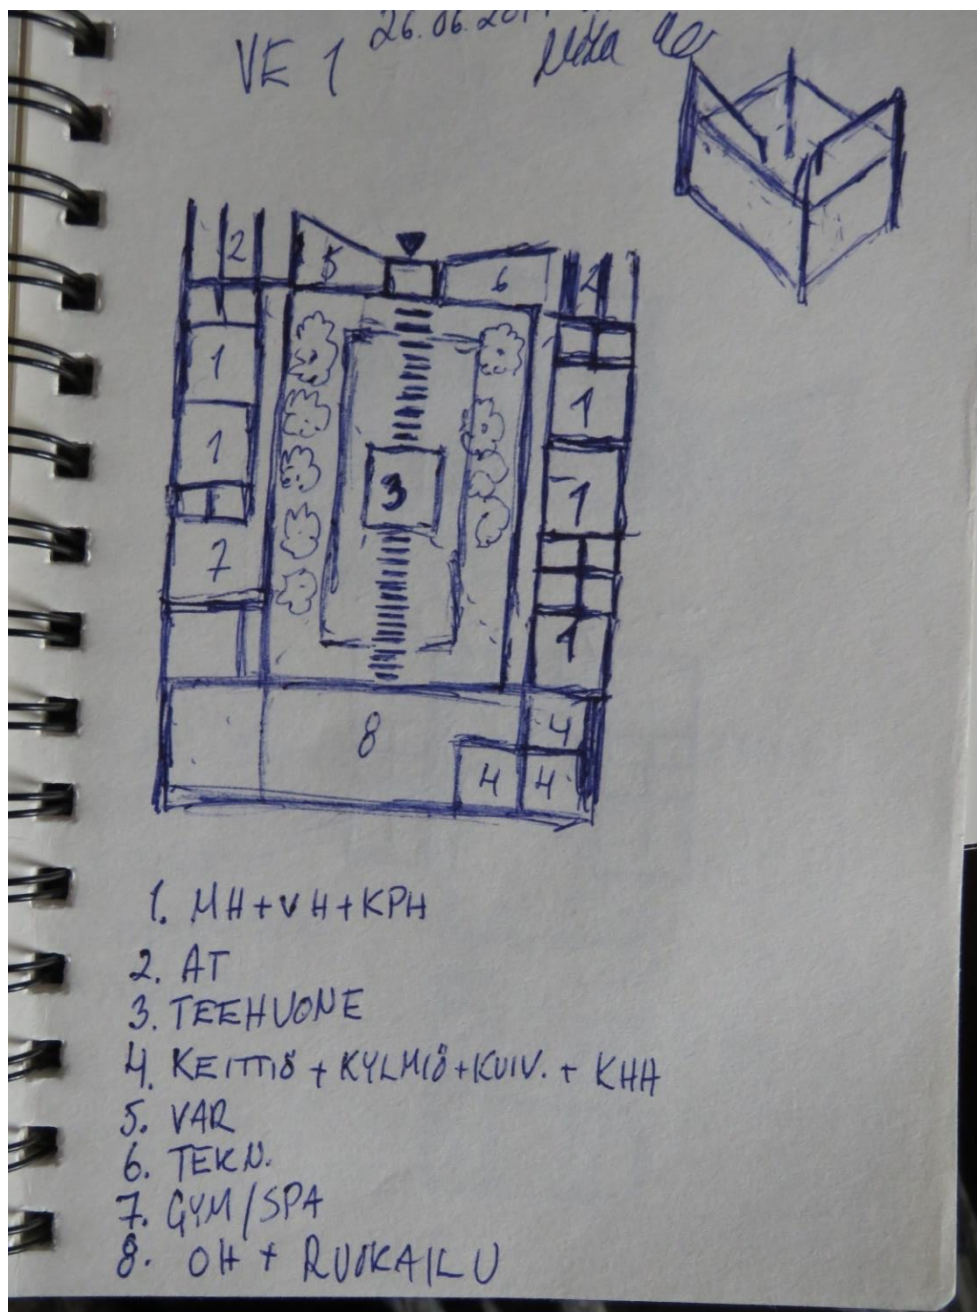 26.06.201
VE 1
2
5
6
2
1
1
1
3
1
7
1
8
4
4
4
1. MH + VH + KPH
2. AT
3. TEEHUONE
4. KEITTIÖ + KYLMIÖ + KUIV. + KHH
5. VAR
6. TEKN.
7. GYM/SPA
8. OH + RUOKAILU